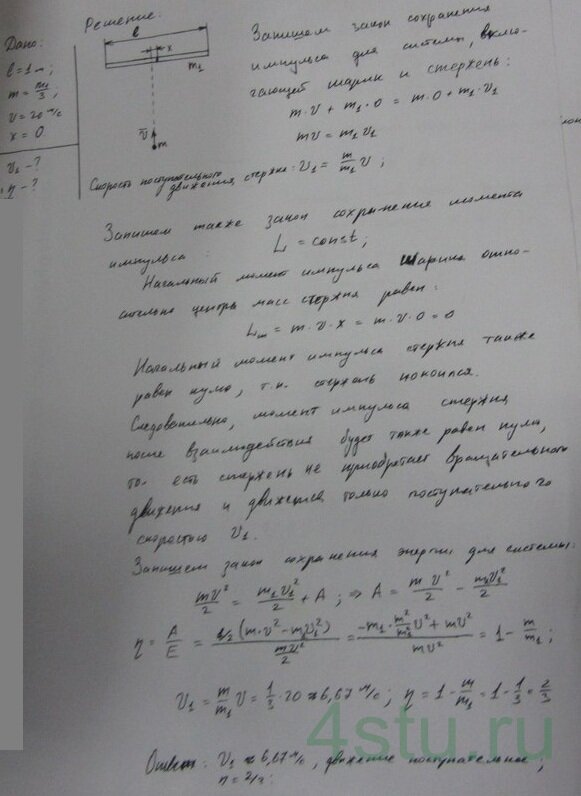 Дано:
l = 1 м;
m = m₁/3;
v = 20 м/с
x = 0
v₁ - ?
η - ?
Решение:
l
x
m₁
v̄
m
Запишем закон сохранения
импульса для системы, вклю-
чающей шарик и стержень:
m·v + m₁·0 = m·0 + m₁·v₁
mv = m₁v₁
Скорость поступательного
движения стержня: v₁ = m/m₁ v;
Запишем также закон сохранения момента
импульса: L = const;
Начальный момент импульса шарика отно-
сительно центра масс стержня равен:
Lш = m·v·x = m·v·0 = 0
Начальный момент импульса стержня также
равен нулю, т.к. стержень покоился.
Следовательно, момент импульса стержня
после взаимодействия будет также равен нулю,
то есть стержень не приобретает вращательного
движения и движется только поступательно со
скоростью v₁.
Запишем закон сохранения энергии для системы:
mv²/2 = m₁v₁²/2 + A; ⇒ A = mv²/2 - m₁v₁²/2
η = A/E = ½(m·v² - m₁v₁²)/(mv²/2) = (-m₁·m²/m₁² v² + mv²)/mv² = 1 - m/m₁;
v₁ = m/m₁ v = 1/3·20 ≈ 6,67 м/с; η = 1 - m/m₁ = 1 - 1/3 = 2/3
Ответ: v₁ ≈ 6,67 м/с, движение поступательное;
η = 2/3.
4stu.ru